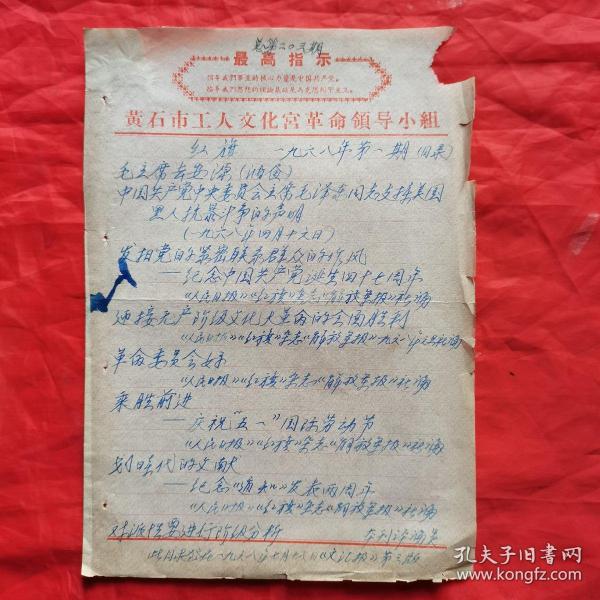 总第二〇三期
最高指示
领导我们事业的核心力量是中国共产党。
指导我们思想的理论基础是马克思列宁主义。
黄石市工人文化宫革命领导小组
红旗 一九六八年第一期（目录）
毛主席去安源（油画）
中国共产党中央委员会主席毛泽东同志支持美国
黑人抗暴斗争的声明
（一九六八年四月十六日）
发扬党的紧密联系群众的作风
——纪念中国共产党诞生四十七周年
《人民日报》《红旗》杂志《解放军报》社论
迎接无产阶级文化大革命的全面胜利
《人民日报》《红旗》杂志《解放军报》一九六八年元旦社论
革命委员会好
《人民日报》《红旗》杂志《解放军报》社论
乘胜前进
——庆祝“五一”国际劳动节
《人民日报》《红旗》杂志《解放军报》社论
划时代的文献
——纪念《通知》发表两周年
《人民日报》《红旗》杂志《解放军报》社论
对派性要进行阶级分析 本刊评论员
此目录登在一九六八年七月十八日《文汇报》第三版
孔夫子旧书网
www.kongfz.com